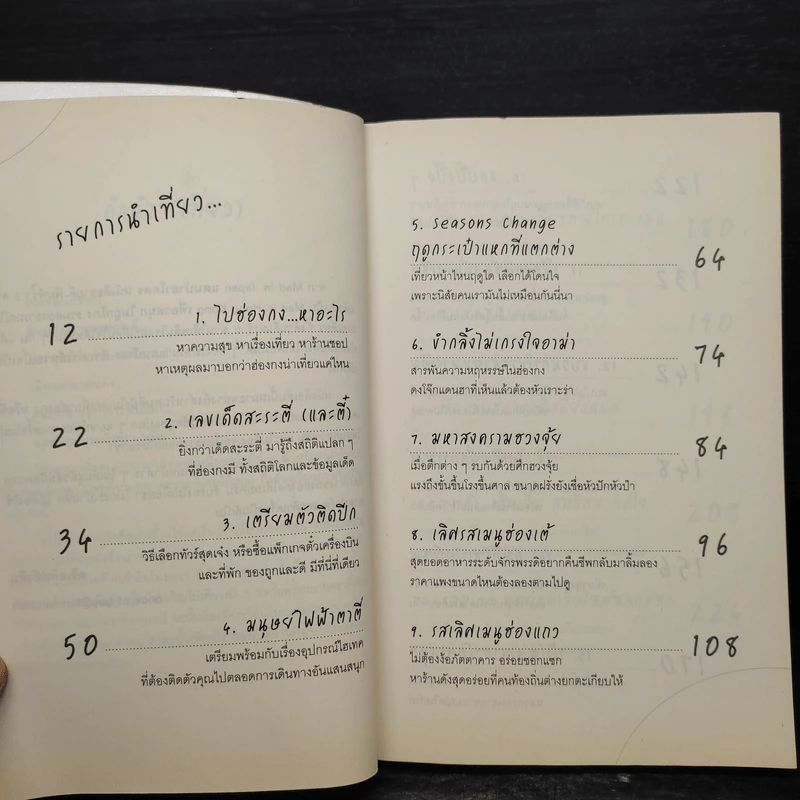 รายการนำเที่ยว...
1. ไปฮ่องกง...หาอะไร
12
หาความสุข หาเรื่องเที่ยว หาร้านชอป
หาเหตุผลมาบอกว่าฮ่องกงน่าเที่ยวแค่ไหน
2. เลขเด็ดสะระตี่ (และตี๋)
22
ยิ่งกว่าเด็ดสะระตี่ มารู้ถึงสถิติแปลก ๆ
ที่ฮ่องกงมี ทั้งสถิติโลกและข้อมูลเด็ด
3. เตรียมตัวติดปีก
34
วิธีเลือกทัวร์สุดเจ๋ง หรือซื้อแพ็กเกจตั๋วเครื่องบิน
และที่พัก ของถูกและดี มีที่นี่ที่เดียว
4. มนุษย์ไฟฟ้าตาตี่
50
เตรียมพร้อมกับเรื่องอุปกรณ์ไฮเทค
ที่ต้องติดตัวคุณไปตลอดการเดินทางอันแสนสนุก
5. Seasons Change
ฤดูกระเป๋าแหกที่แตกต่าง
64
เที่ยวหน้าไหนฤดูใด เลือกได้โดนใจ
เพราะนิสัยคนเรามันไม่เหมือนกันนี่นา
6. ขำกลิ้งไม่เกรงใจอาม่า
74
สารพันความหฤหรรษ์ในฮ่องกง
ดงโจ๊กแดนฮาที่เห็นแล้วต้องหัวเราะร่า
7. มหาสงครามฮวงจุ้ย
84
เมื่อตึกต่าง ๆ รบกันด้วยศึกฮวงจุ้ย
แรงถึงขั้นขึ้นโรงขึ้นศาล ขนาดฝรั่งยังเชื่อหัวปักหัวปำ
8. เลิศรสเมนูฮ่องเต้
96
สุดยอดอาหารระดับจักรพรรดิอยากคืนชีพกลับมาลิ้มลอง
ราคาแพงขนาดไหนต้องลองตามไปดู
9. รสเลิศเมนูฮ่องแถว
108
ไม่ต้องง้อภัตตาคาร อร่อยซอกแซก
หาร้านดังสุดอร่อยที่คนท้องถิ่นต่างยกตะเกียบให้